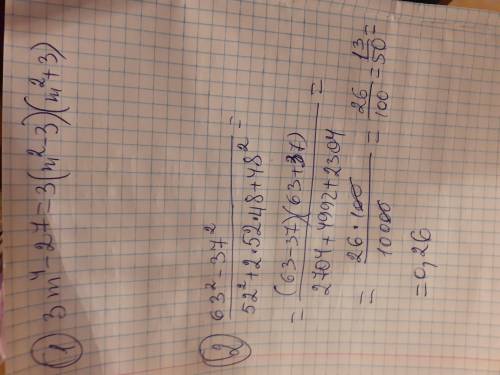 ① 3m⁴-27=3(m²-3)(m²+3)
② (63²-37²)/(52²+2·52·48+48²)=
=((63-37)(63+37))/(2704+4992+2304)=
=(26·100)/10000=26/100=13/50=
=0,26